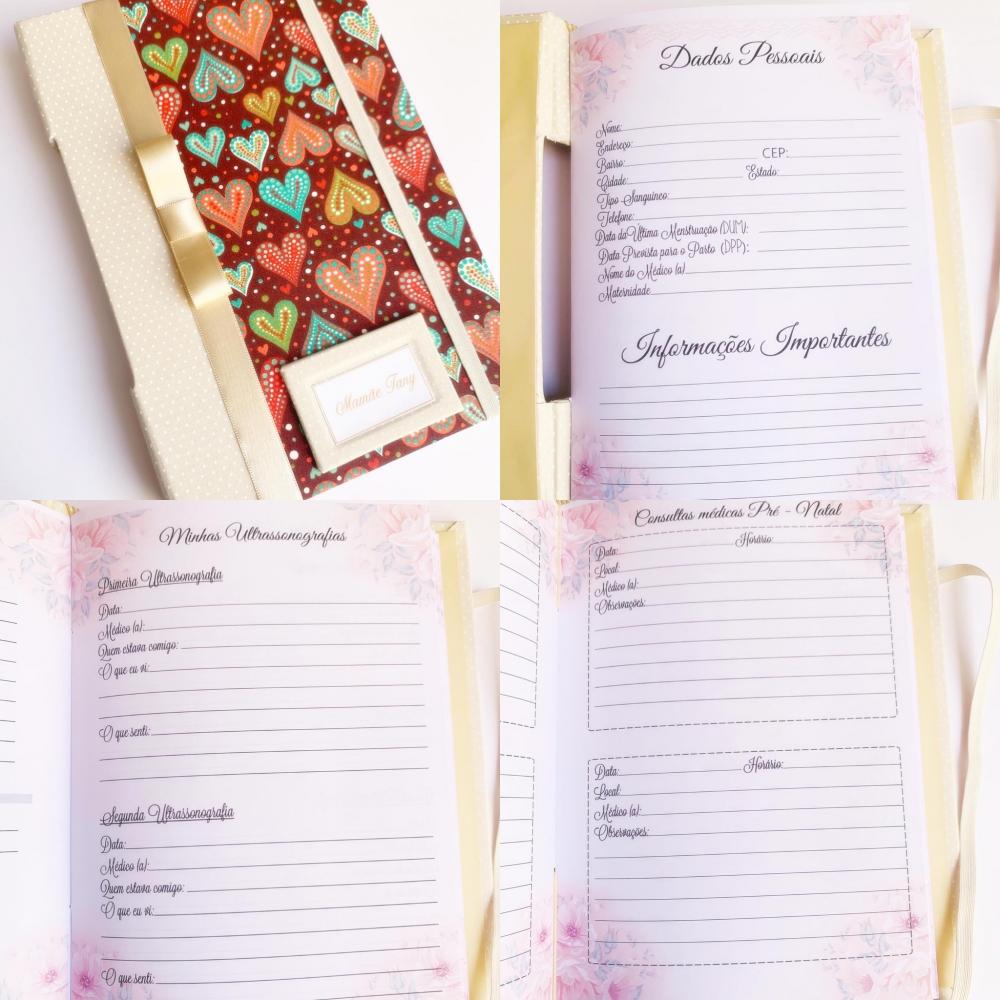 Mamãe Tany
Dados Pessoais
Nome:
Endereço:
Bairro: CEP:
Cidade: Estado:
Tipo Sanguíneo:
Telefone:
Data da Última Menstruação (DUM):
Data Prevista para o Parto (DPP):
Nome do Médico (a)
Maternidade
Informações Importantes
Minhas Ultrassonografias
Primeira Ultrassonografia
Data:
Médico (a):
Quem estava comigo:
O que eu vi:
O que senti:
Segunda Ultrassonografia
Data:
Médico (a):
Quem estava comigo:
O que eu vi:
O que senti:
Consultas médicas Pré - Natal
Data: Horário:
Local:
Médico (a):
Observações:
Data: Horário:
Local:
Médico (a):
Observações: